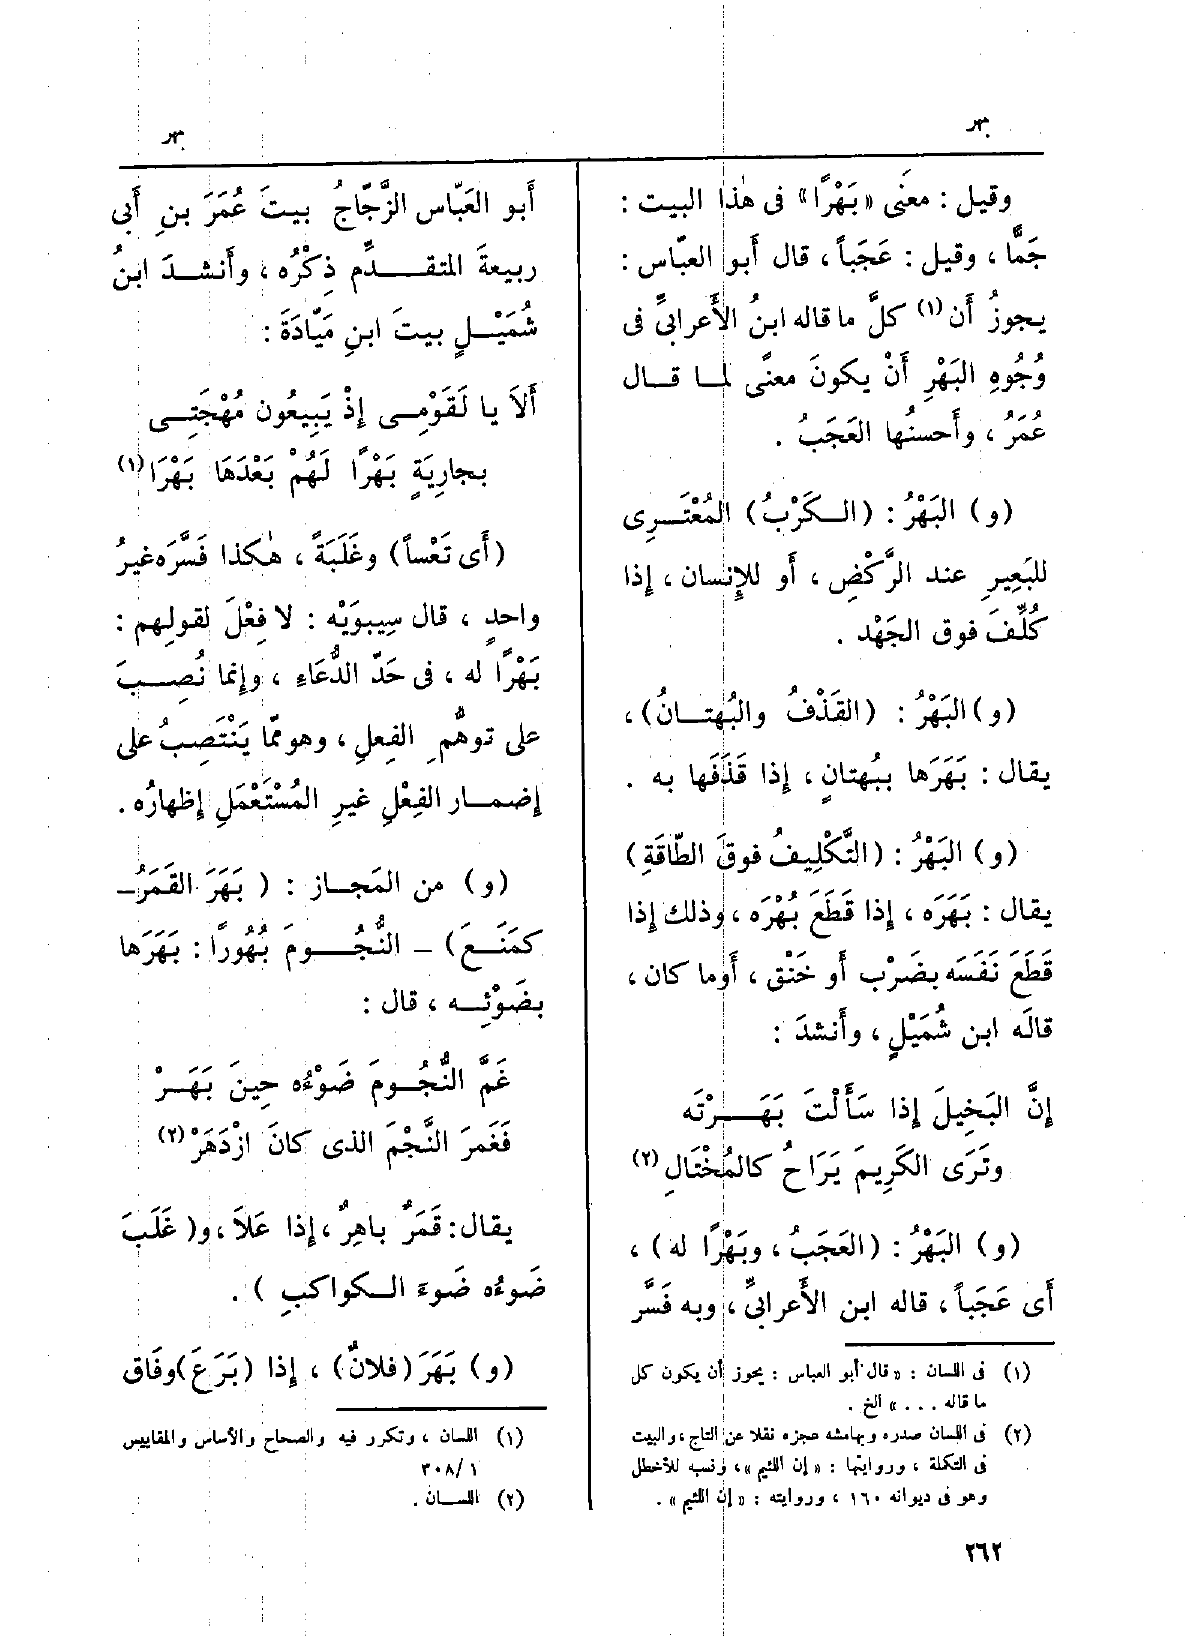 بهر
بهر
وقيل : معنَى «بَهْرًا» فى هٰذا البيت :
جَمًّا ، وقيل : عَجَباً ، قال أَبو العبّاس :
يجوزُ أَن (١) كلَّ ما قاله ابنُ الأَعرابىِّ فى
وُجُوهِ البَهْرِ أَنْ يكونَ معنًى لمـا قـال
عُمَرُ ، وأَحسنُها العَجَبُ .
(و) البَهْرُ : (الـكَرْبُ) المُعْتَـرِى
للبَعِيرِ عند الرَّكْضِ ، أَو للإِنسان ، إِذا
كُلِّفَ فوق الجَهْد .
(و) البَهْرُ : (القَذْفُ والبُهتـانُ) ،
يقال : بَهَرَها ببُهتانٍ ، إِذا قَذَفَها به .
(و) البَهْرُ : (التَّكْلِيفُ فوقَ الطّاقَةِ)
يقال : بَهَرَه ، إِذا قَطَعَ بُهْرَه ، وذلك إِذا
قَطَعَ نَفَسَه بضَرْب أَو خَنْق ، أَوما كان ،
قالَه ابن شُمَيْلٍ ، وأَنشدَ :
إِنَّ البَخِيلَ إِذا سَأَلْتَ بَهَـرْتَه
وتَرَى الكَرِيمَ يَرَاحُ كالمُخْتَالِ (٢)
(و) البَهْرُ : (العَجَبُ ، وبَهْرًا له) ،
أَى عَجَباً ، قاله ابن الأَعرابىِّ ، وبه فَسَّر
(١) فى اللسان : « قال أبو العباس : يجوز أن يكون كل
ما قاله . . . » الخ .
(٢) فى اللسان صدره وبهامشه عجزه نقلا عن التاج ، والبيت
فى التكملة ، وروايتها : « إن اللئيم » ، ونسبه للأخطل
وهو فى ديوانه ١٦٠ ، وروايته : « إن اللئيم » .
أَبو العَبّاس الزَّجّاجُ بيتَ عُمَرَ بنِ أَبى
ربيعةَ المتقـدِّم ذِكْرُه ، وأَنشـدَ ابنُ
شُمَيْـلٍ بيتَ ابنِ مَيّادَةَ :
أَلاَ يا لَقَوْمِـى إِذْ يَبِيعُون مُهْجَتِـى
بجارِيَةٍ بَهْرًا لَهُمْ بَعْدَهَا بَهْرَا (١)
(أَى تَعْساً) وغَلَبَةً ، هٰكذا فَسَّرَه غيرُ
واحدٍ ، قال سِيبوَيْه : لا فِعْلَ لقولِهم :
بَهْرًا له ، فى حَدّ الدُّعَاءِ ، وإِنما نُصِـبَ
على توهُّمِ الفِعلِ ، وهو ممّا يَنْتَصِبُ على
إِضمـار الفِعْلِ غيرِ المُسْتَعْمَلِ إِظهارُه .
(و) من المَجـاز : ( بَهَرَ القَمَرُـ
كمَنَـعَ) ـ النُّجُـومَ بُهُورًا : بَهَرَها
بضَوْئِـه ، قال :
غَمَّ النُّجُـومَ ضَوْءُه حِينَ بَهَـرْ
فَغَمرَ النَّجْمَ الذى كانَ ازْدَهَرْ (٢)
يقال : قَمَرٌ باهِرٌ ، إِذا عَلاَ ، و( غَلَبَ
ضَوءُه ضَوءَ الـكواكبِ ) .
(و) بَهَرَ (فلانٌ) ، إِذا (بَرَعَ) وفَاق
(١) اللسان ، وتكرر فيه والصحاح والأساس والمقاييس
٣٠٨/١
(٢) اللســان .
٢٦٢